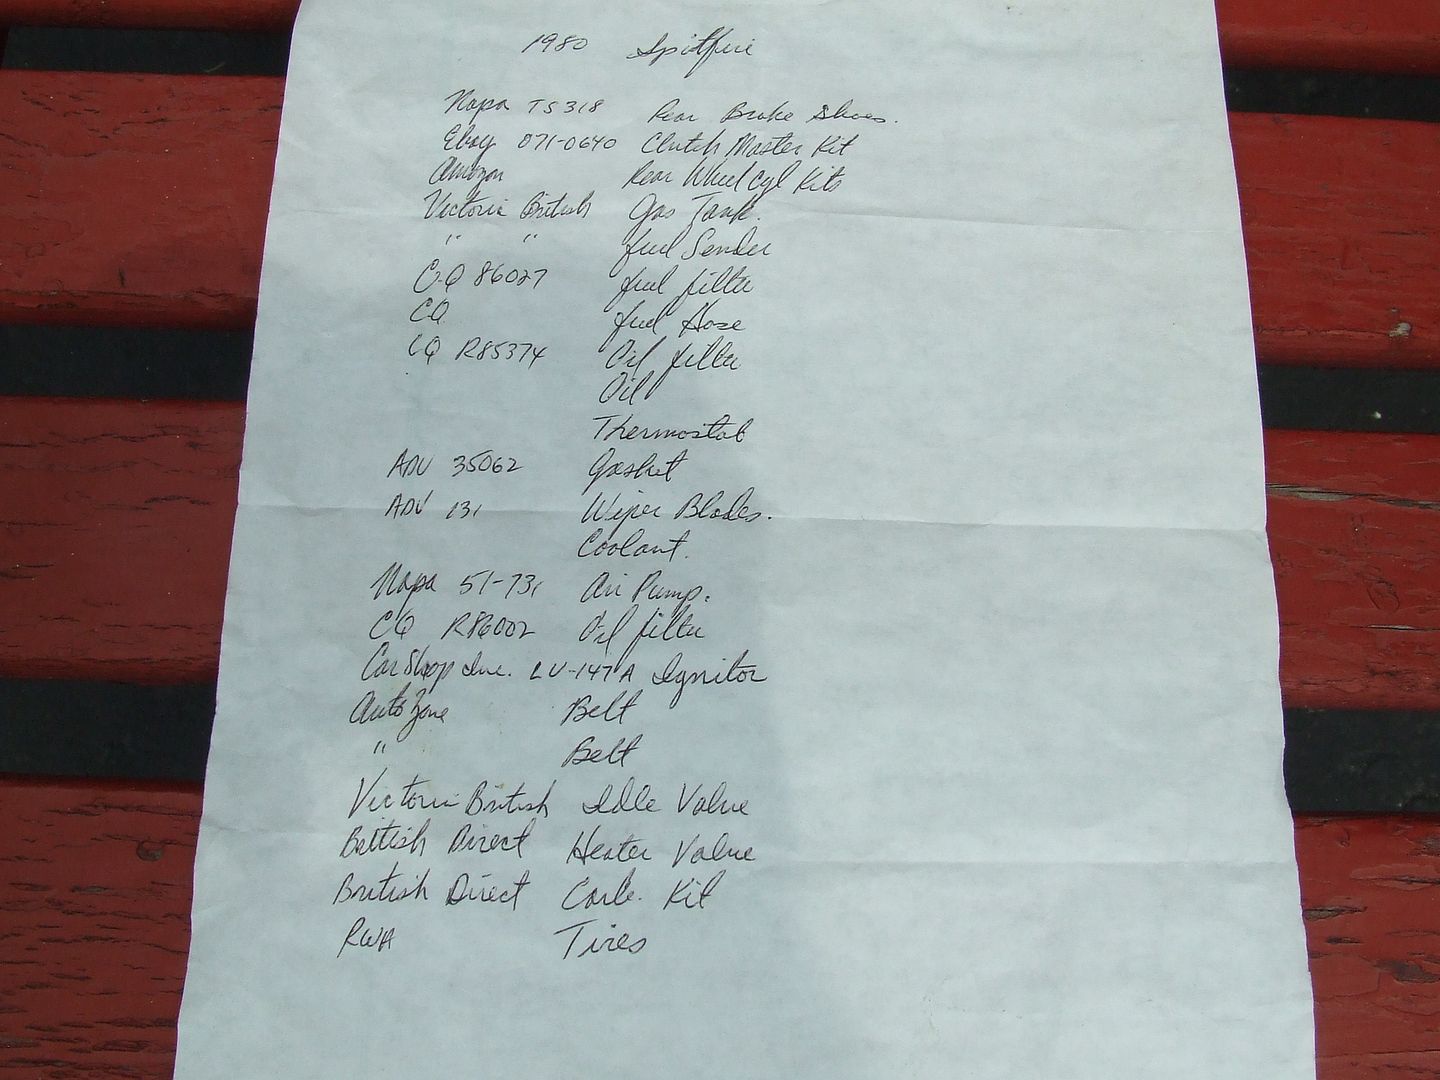 1980 Spitfire
Napa TS318 Rear Brake Shoes.
Ebay 071-0640 Clutch Master Kit
Amazon Rear Wheel Cyl Kits
Victoria British Gas Tank.
" " fuel Sender
CQ 86027 fuel filter
CQ fuel Hose
CQ R85374 Oil filter
Oil
Thermostat
ADV 35062 Gasket
ADV 131 Wiper Blades.
Coolant.
Napa 51-731 Air Pump.
CQ R86002 Oil filter
Car Shop Inc. LU-147A Ignitor
AutoZone Belt
" Belt
Victoria British Idle Valve
British Direct Heater Valve
British Direct Carb. Kit
RWA Tires